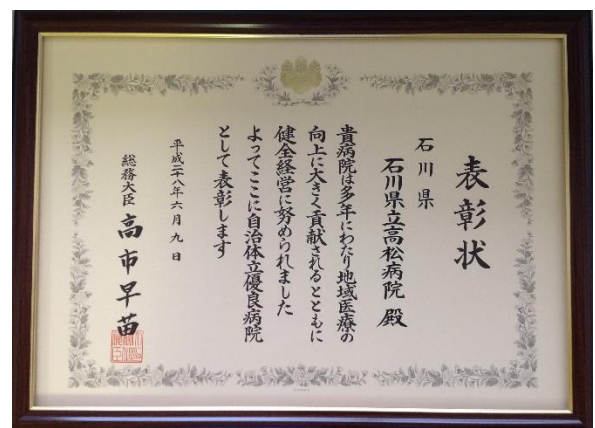 表彰状
石川県
石川県立高松病院 殿
貴病院は多年にわたり地域医療の
向上に大きく貢献されるとともに
健全経営に努められました
よってここに自治体立優良病院
として表彰します
平成二八年六月九日
総務大臣 高市早苗